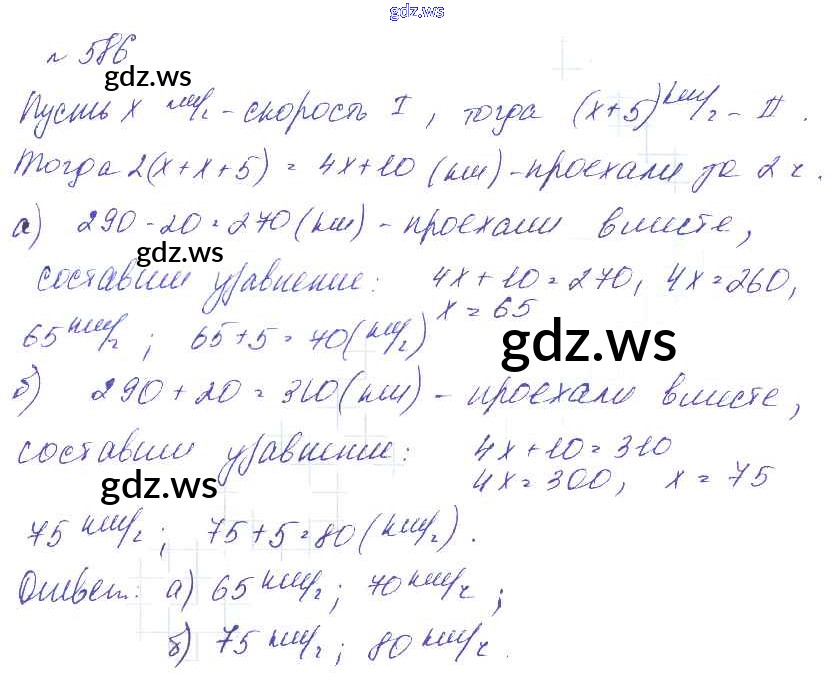 gdz.ws
№ 586
gdz.ws
Пусть x км/ч - скорость I, тогда (x+5) км/ч - II.
Тогда 2(x+x+5) = 4x+10 (км) - проехали за 2 ч.
а) 290-20=270 (км) - проехали вместе,
gdz.ws
составим уравнение: 4x+10=270, 4x=260,
x=65
65 км/ч; 65+5=70 (км/ч)
gdz.ws
б) 290+20=310 (км) - проехали вместе,
составим уравнение: 4x+10=310
gdz.ws
4x=300, x=75
75 км/ч; 75+5=80 (км/ч).
Ответ: а) 65 км/ч; 70 км/ч;
б) 75 км/ч; 80 км/ч.